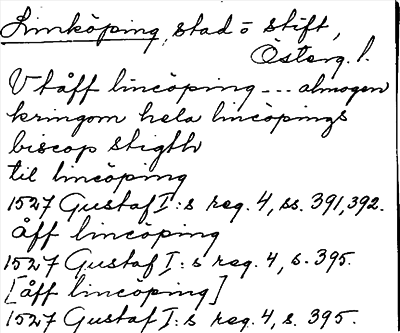 Linköping, stad o stift,
Österg. l.
Vtåff lincöping --- almogen
kringom hela lincöpings
biscop stigth
til lincöping
1527 Gustaf I:s reg. 4, ss. 391, 392.
åff lincöping
1527 Gustaf I:s reg. 4, s. 395.
[åff lincöping]
1527 Gustaf I:s reg. 4, s. 395.